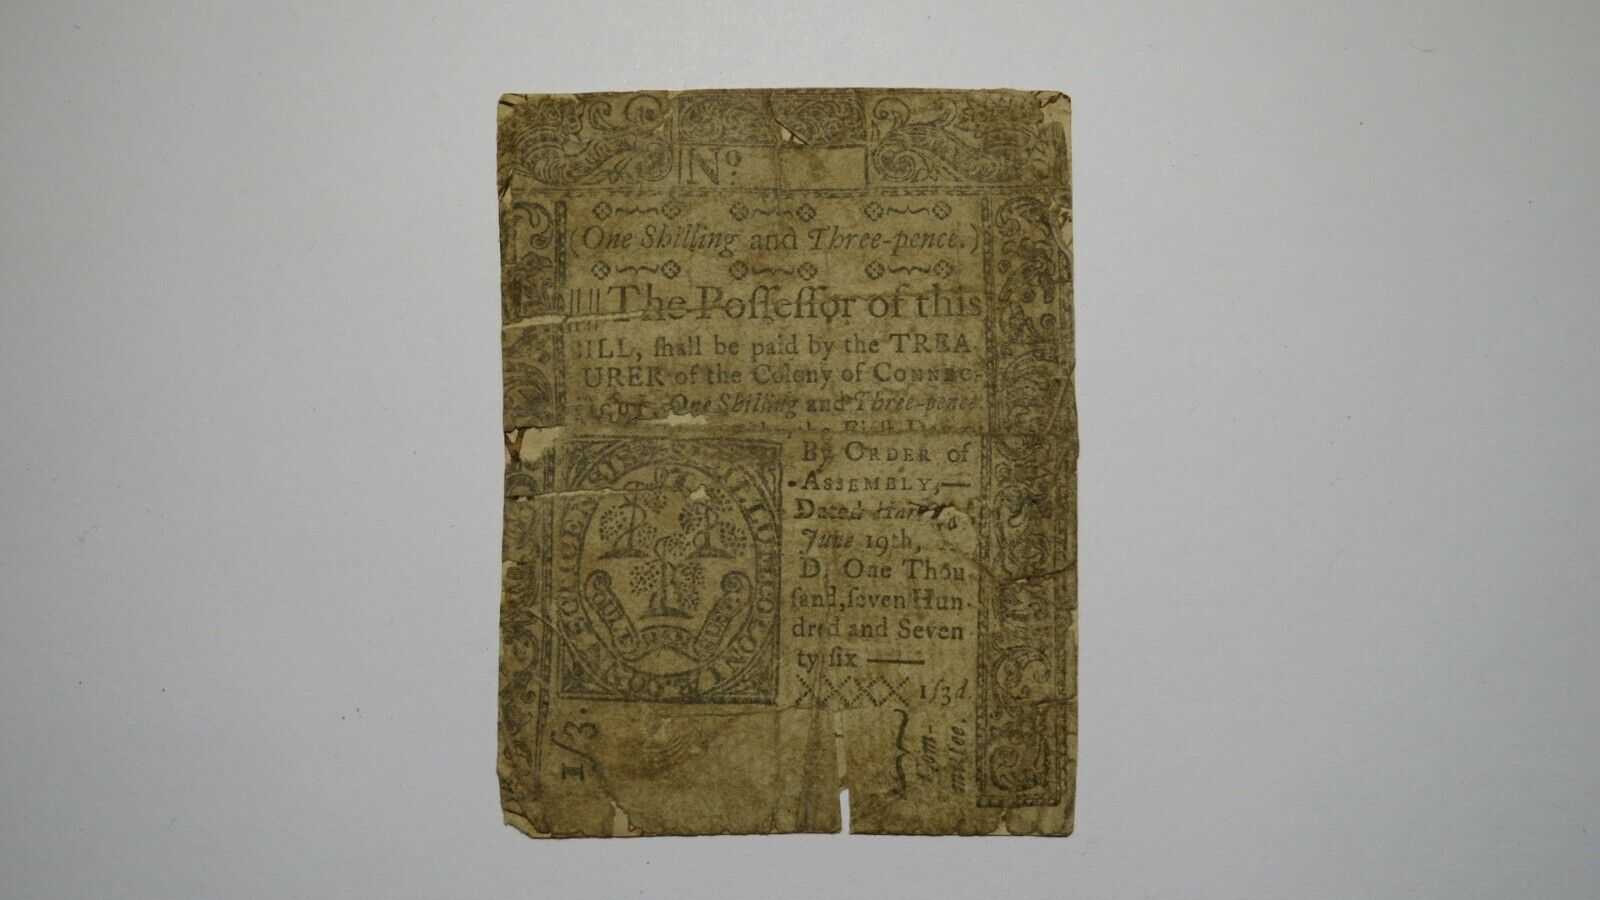 No.
(One Shilling and Three-pence.)
The Poſſeſſor of this
BILL, ſhall be paid by the TREA-
URER of the Colony of CONNEC-
One Shilling and Three-pence
By ORDER of
ASSEMBLY,—
Dated
June 19th,
D. One Thou
ſand, ſeven Hun-
dred and Seven
ty-ſix ——
1ſ3d.
1/3.
Com-
mittee.